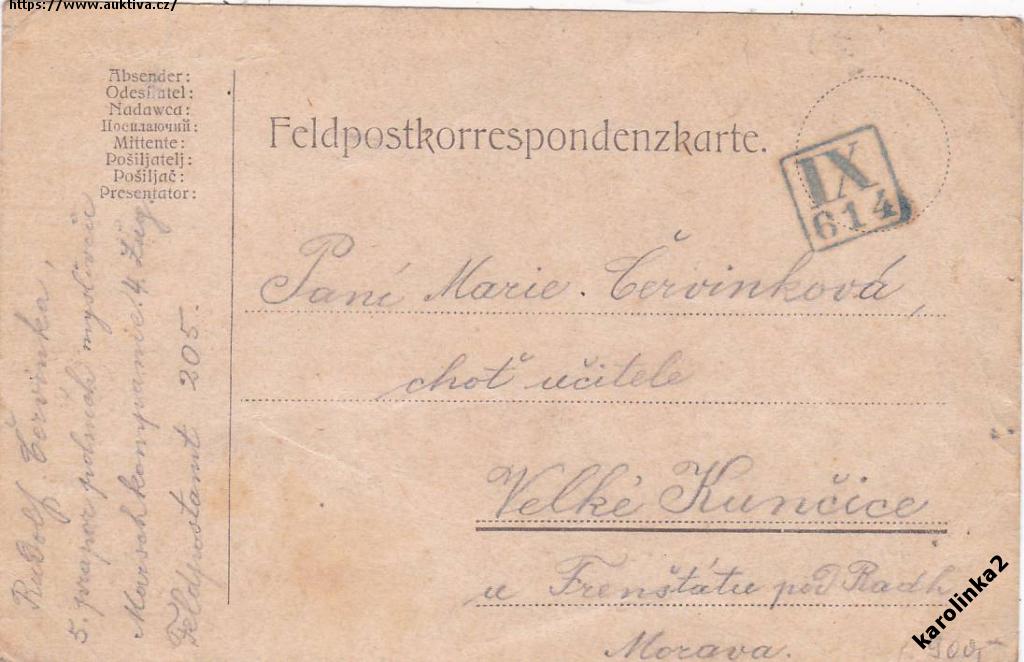 https://www.auktiva.cz/
Absender:
Odesílatel:
Nadawca:
Посилаючий:
Mittente:
Pošiljatelj:
Pošiljač:
Presentator:
Rudolf Červinka,
5. prapor polních myslivců
Marschkompanie 4. Zug.
Feldpostamt 205.
Feldpostkorrespondenzkarte.
IX
614
Paní Marie Červinková,
choť učitele
Velké Kunčice
u Frenštátu pod Radh
Morava.
karolinka2